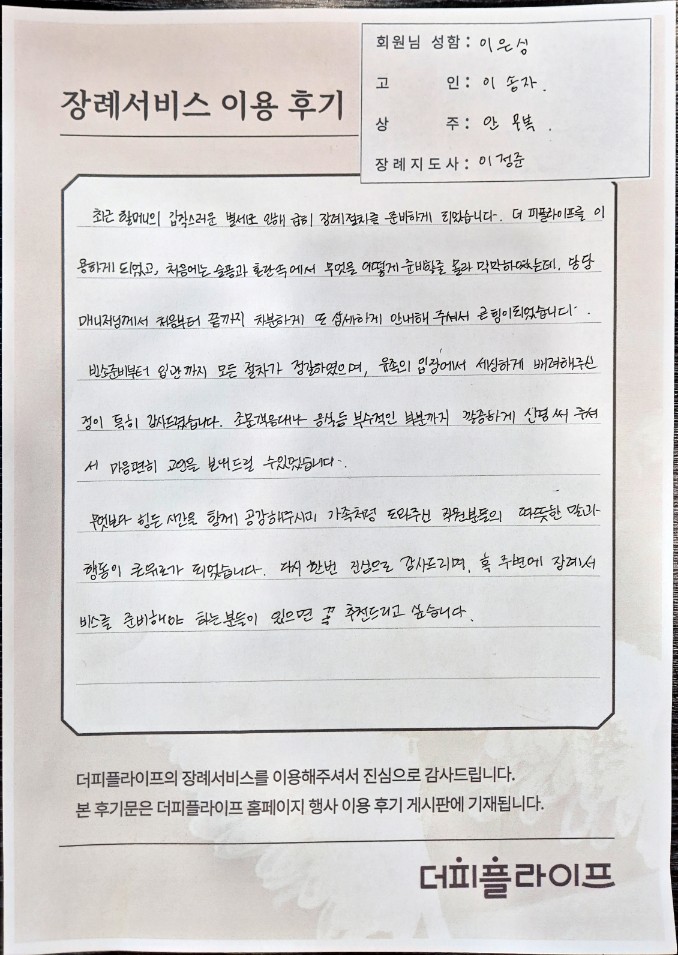 장례서비스 이용 후기
회원님 성함: 이은성
고 인: 이 송자.
상 주: 안 묵복.
장례지도사: 이정준
최근 할머니의 갑작스러운 별세로 인해 급히 장례절차를 준비하게 되었습니다. 더 피플라이프를 이
용하게 되었고, 처음에는 슬픔과 혼란속에서 무엇을 어떻게 준비할줄 몰라 막막하였는데. 담당
매니저님께서 처음부터 끝까지 차분하게 또 섬세하게 안내해 주셔서 큰힘이되었습니다.
빈소준비부터 입관까지 모든 절차가 정갈하였으며, 유족의 입장에서 세심하게 배려해주신
점이 특히 감사드렸습니다. 조문객응대나 음식등 부수적인 부분까지 꼼꼼하게 신경 써 주셔
서 마음편히 고인을 보내드릴 수있었습니다.
무엇보다 힘든 시간을 함께 공감해주시며 가족처럼 도와주신 직원분들의 따뜻한 말과
행동이 큰위로가 되었습니다. 다시 한번 진심으로 감사드리며, 혹 주변에 장례서
비스를 준비해야 하는분들이 있으면 꼭 추천드리고 싶습니다.
더피플라이프의 장례서비스를 이용해주셔서 진심으로 감사드립니다.
본 후기문은 더피플라이프 홈페이지 행사 이용 후기 게시판에 기재됩니다.
더피플라이프